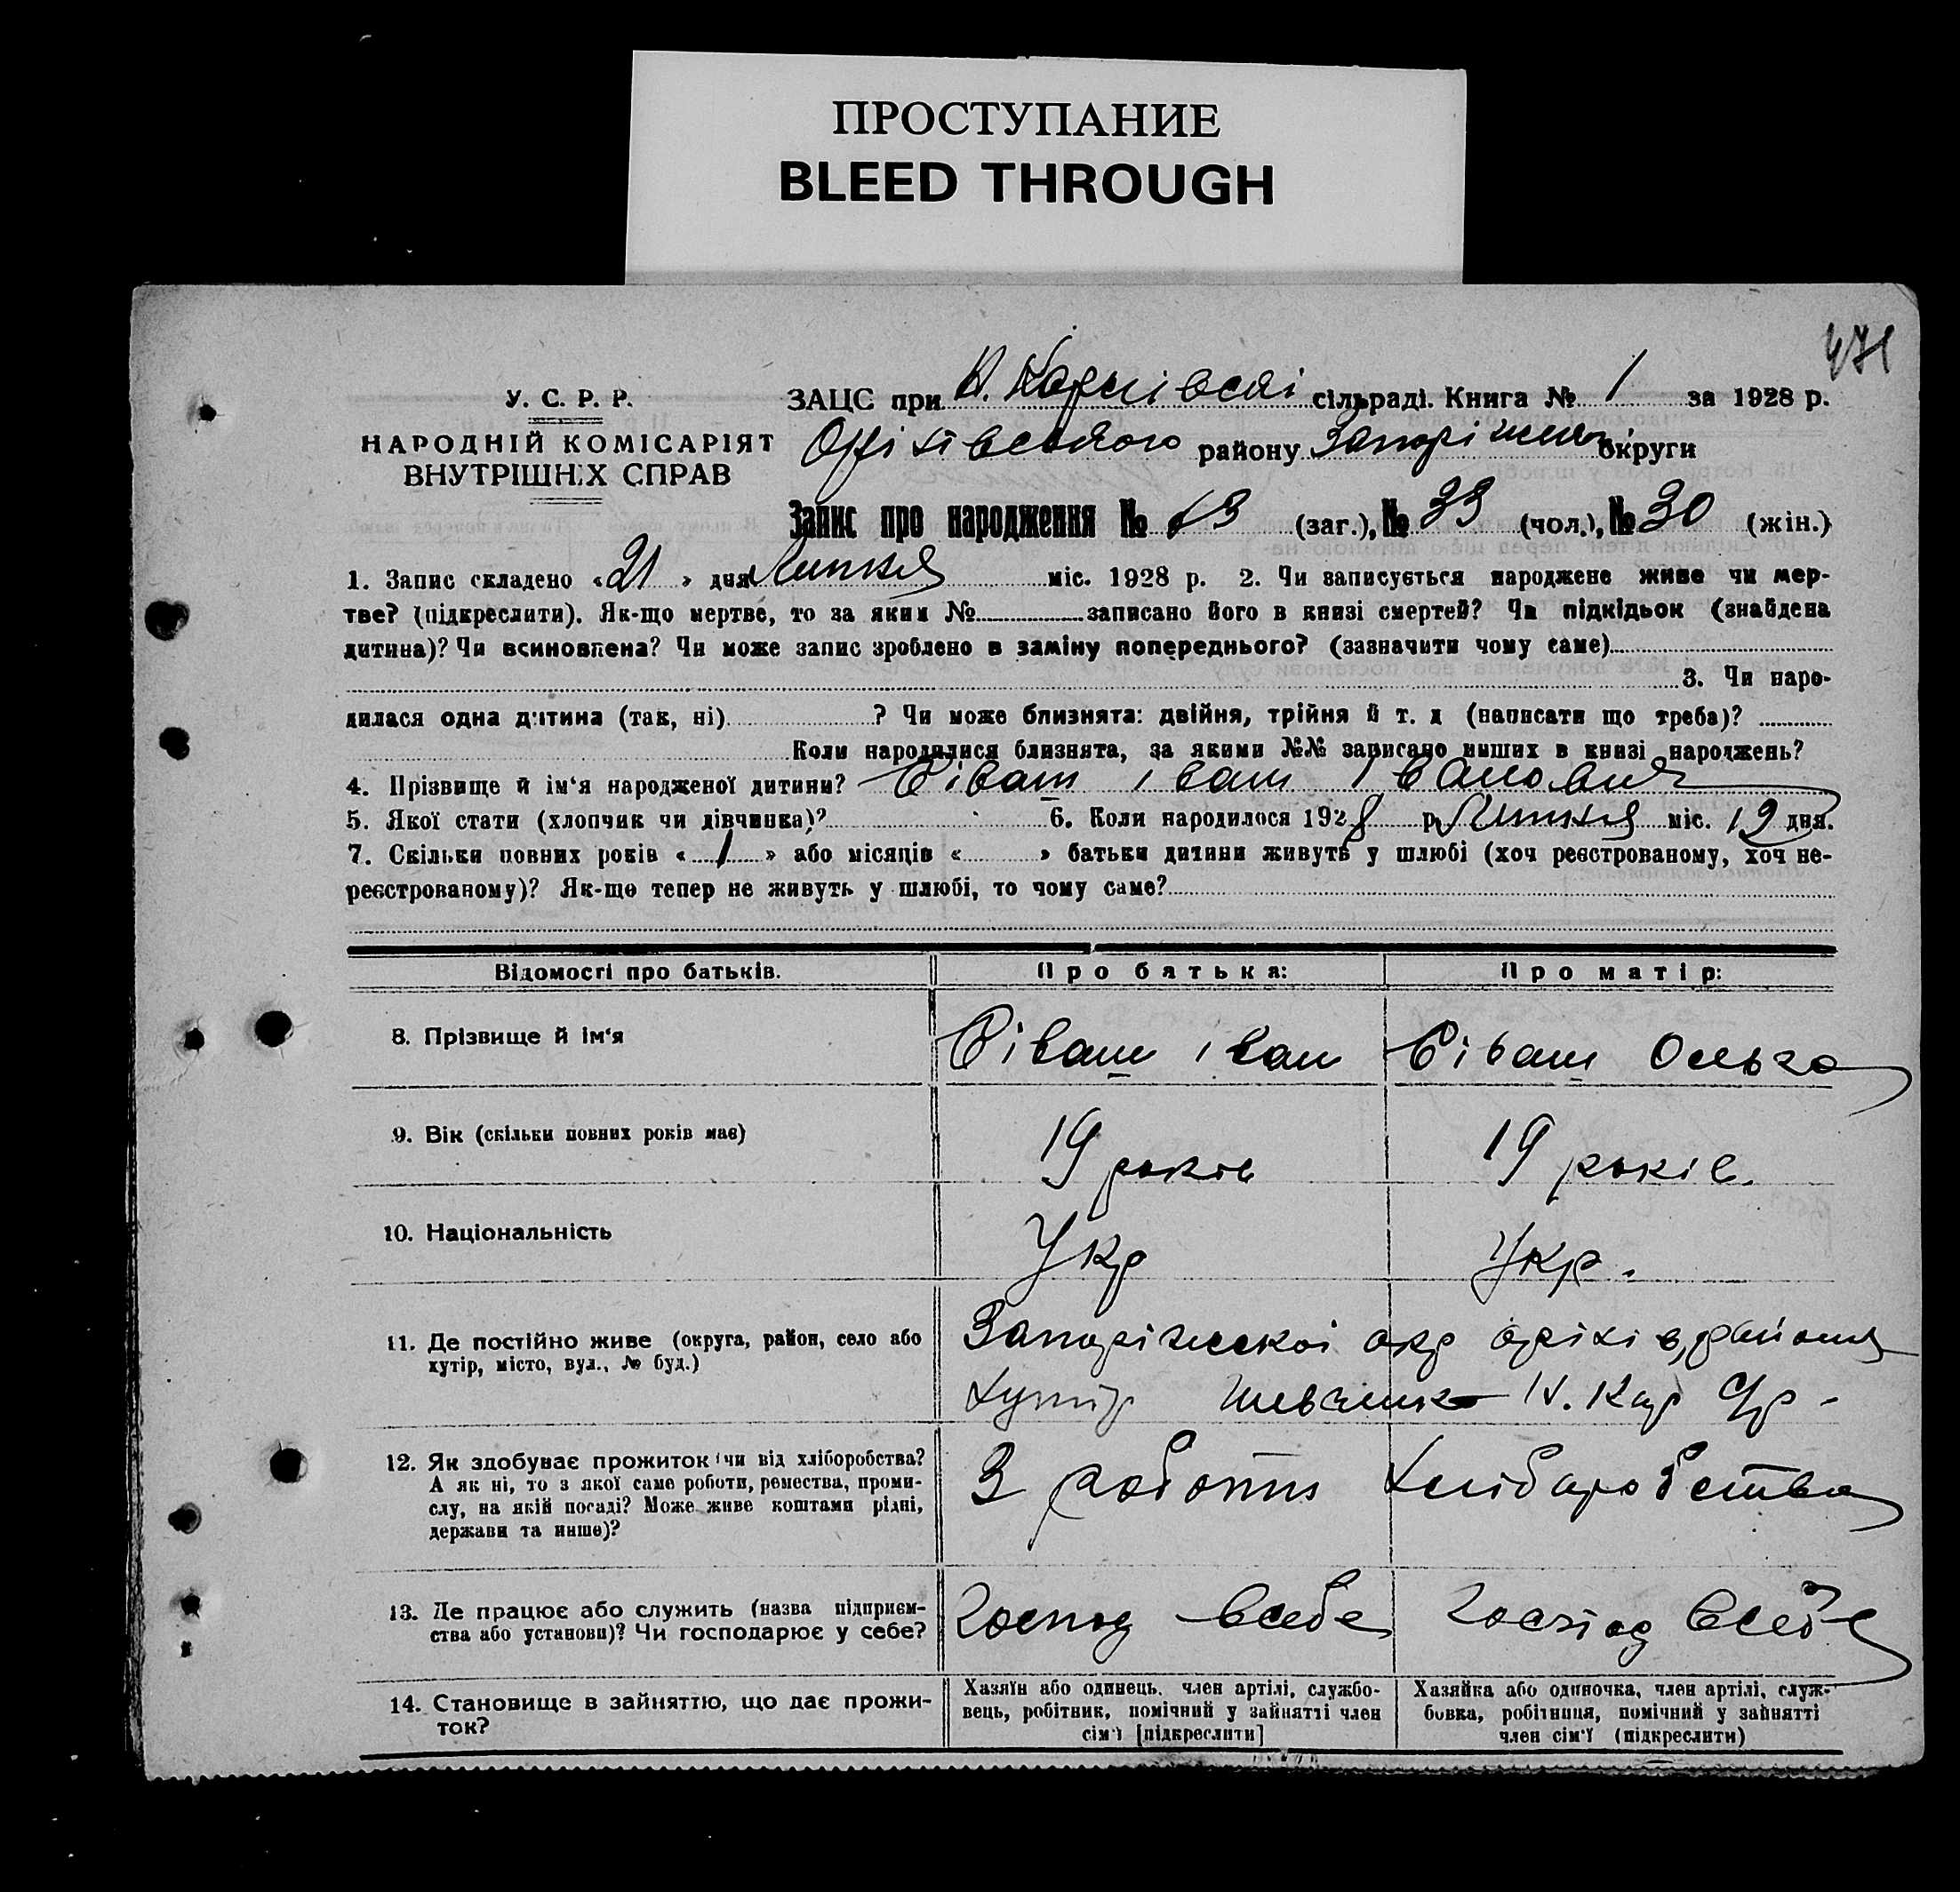 ПРОСТУПАНИЕ
BLEED THROUGH
471
У. С. Р. Р.
НАРОДНІЙ КОМІСАРІЯТ
ВНУТРІШНІХ СПРАВ
ЗАЦС при Н. Карлівскі сільраді. Книга № 1 за 1928 р.
Оріхівського району Запоріжськ округи
Запис про народження № 63 (заг.), № 33 (чол.), № 30 (жін.)
1. Запис складено «21» дня Липня міс. 1928 р. 2. Чи записується народжене живе чи мер-
тве? (підкреслити). Як-що мертве, то за яким № записано його в книзі смертей? Чи підкідьок (знайдена
дитина)? Чи всиновлена? Чи може запис зроблено в заміну попереднього? (зазначити чому саме)
3. Чи наро-
дилася одна дитина (так, ні) ? Чи може близнята: двійня, трійня й т. д (написати що треба)?
Коли народилися близнята, за якими №№ записано инших в книзі народжень?
4. Прізвище й ім‘я народженої дитини? Сіваш Іван Іванович
5. Якої стати (хлопчик чи дівчинка)? 6. Коли народилося 1928 р. Липня міс. 19 дня.
7. Скільки повних років «1» або місяців « » батьки дитини живуть у шлюбі (хоч реєстрованому, хоч не-
реєстрованому)? Як-що тепер не живуть у шлюбі, то чому саме?
Відомості про батьків. Про батька: Про матір:
8. Прізвище й ім‘я Сіваш Іван Сіваш Ольга
9. Вік (скільки повних років має) 19 років 19 років.
10. Національність Укр Укр.
11. Де постійно живе (округа, район, село або
хутір, місто, вул., № буд.)
Запоріжскої окр Оріхів, района
хутір Шевченк Н. Кар
12. Як здобуває прожиток чи від хліборобства?
А як ні, то з якої саме роботи, ремества, проми-
слу, на якій посаді? Може живе коштами рідні,
держави та инше)?
З работи хлібаробства
13. Де працює або служить (назва підприєм-
ства або установи)? Чи господарює у себе?
Господ всебе Господ всебе
14. Становище в зайняттю, що дає прожи-
ток?
Хазяїн або одинець, член артілі, службо-
вець, робітник, помічний у зайнятті член
сім‘ї [підкреслити]
Хазяйка або одиночка, член артілі, служ-
бовка, робітниця, помічний у зайнятті
член сім‘ї (підкреслити)